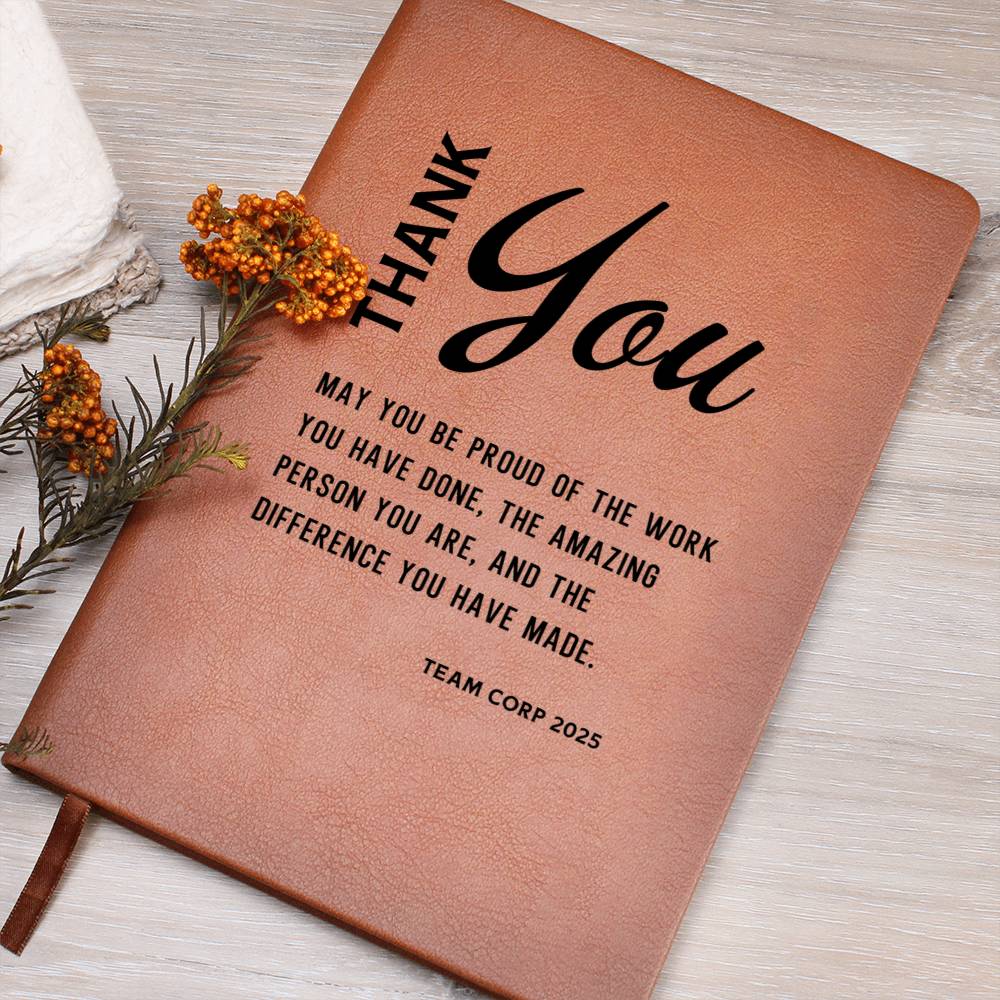 THANK
You
MAY YOU BE PROUD OF THE WORK
YOU HAVE DONE, THE AMAZING
PERSON YOU ARE, AND THE
DIFFERENCE YOU HAVE MADE.
TEAM CORP 2025